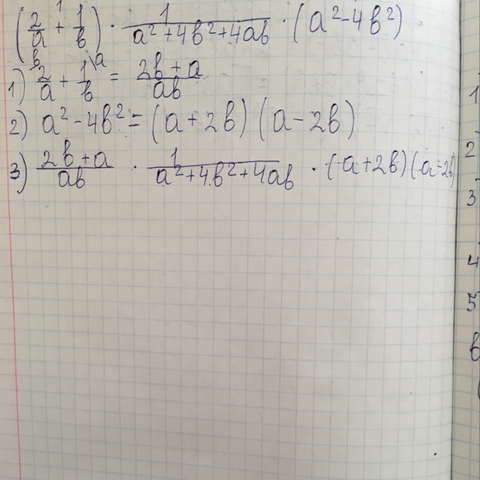 (2/a + 1/b) · 1/(a²+4b²+4ab) · (a²-4b²)
1) 2/a + 1/b = (2b+a)/(ab)
2) a²-4b²=(a+2b)(a-2b)
3) (2b+a)/(ab) · 1/(a²+4b²+4ab) · (a+2b)(a-2b)
1
2
3
4
5